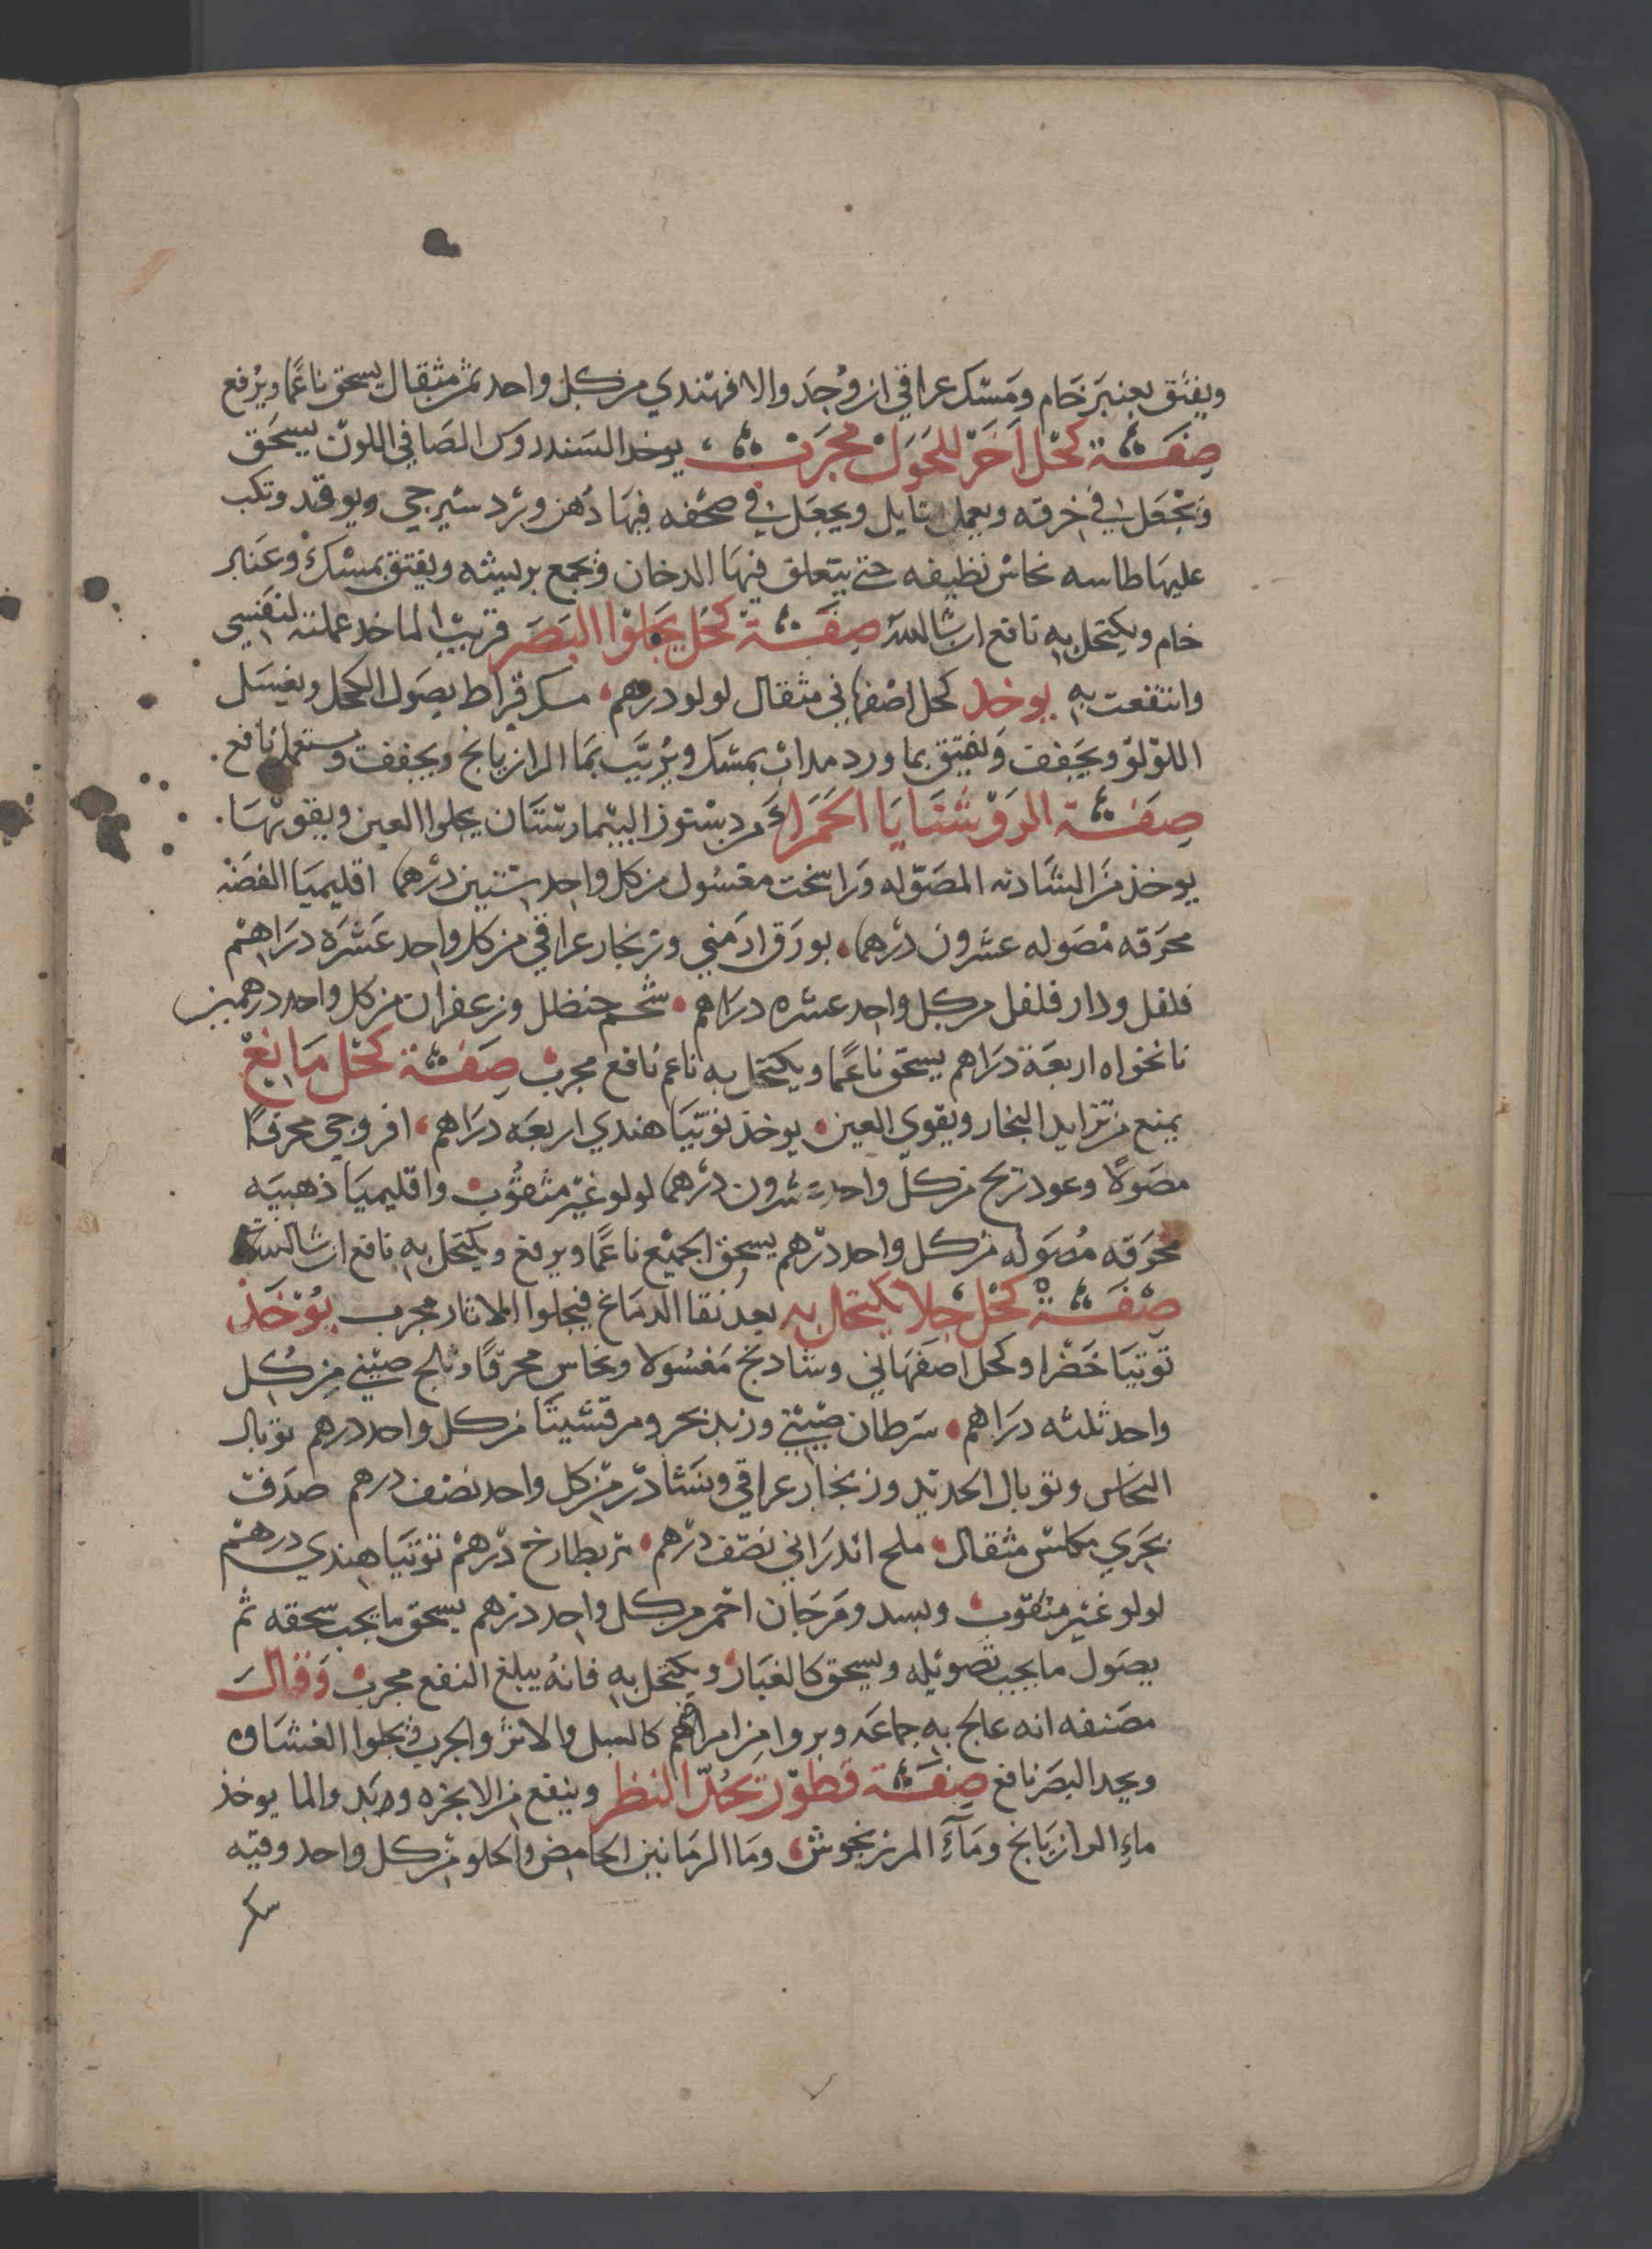 ويفتق بعنبر خام ومسك عراقي ان وجد والا فهندي من كل واحد ثمن مثقال يسحق ناعما ويرفع
صفة كحل اخر للحول مجرب يوخد السندروس الصافي اللون يسحق
ويجعل في خرقه ويعمل فتايل ويجعل في صحفه فيها دهن ورد شيرجي ويوقد وتكب
عليها طاسه نحاس نظيفه حتي يتعلق فيها الدخان ويجمع بريشه ويفتق بمسك وعنبر
خام ويكتحل به نافع ان شا الله صفة كحل يجلوا البصر قريب الماخد عملته لنفسي
وانتفعت به يوخد كحل اصفهاني مثقال لولو درهم مسك قراط يصول الكحل ويغسل
اللولو ويجفف ويفتق بما ورد مداب بمسك ويربب بما الرازيانج ويجفف ويستعمل نافع
صفة الروشنايا الحمراء من دستور البيمارستان يجلوا العين ويقويها
يوخذ من الشادنه المصوله وراسخت مغسول من كل واحد ستين درهما اقليميا الفضه
محرقه مصوله عشرون درهما بورق ارمني وزنجار عراقي من كل واحد عشره دراهم
فلفل ودار فلفل من كل واحد عشره دراهم شحم حنظل وزعفران من كل واحد درهمين
نانخواه اربعة دراهم يسحق ناعما ويكتحل به ناعم نافع مجرب صفة كحل مانع
يمنع من تزايد البخار ويقوي العين يوخذ توتيا هندي اربعه دراهم افروجي محرقا
مصولا وعود ريح من كل واحد عشرون درهما لولو غير مثقوب واقليميا ذهبيه
محرقه مصوله من كل واحد درهم يسحق الجميع ناعما ويرفع ويكتحل به نافع ان شا الله
صفة كحل جلا يكتحل به بعد نقا الدماغ فيجلوا الاثار مجرب يوخذ
توتيا خضرا وكحل اصفهاني وشادنج مغسولا ونحاس محرقا وثلج صيني من كل
واحد ثلثه دراهم سرطان صيني وزبد بحر ومرقشيتا من كل واحد درهم توبال
النحاس وتوبال الحديد وزنجار عراقي ونشادر من كل واحد نصف درهم صدف
بحري مكلس مثقال ملح اندراني نصف درهم بطارخ درهم توتيا هندي درهم
لولو غير مثقوب وبسد ومرجان احمر من كل واحد درهم يسحق ما يجب سحقه ثم
يصول ما يجب تصويله ويسحق كالغبار ويكتحل به فانه يبلغ النفع مجرب وقال
مصنفه انه عالج به جماعه وبروا من امراضهم كالسبل والاثر والجرب ويجلوا الغشاوه
ويحد البصر نافع صفة قطور يحد النظر وينفع من الابخره والما يوخذ
ماء الرازيانج وماء المرزنجوش وما الرمانين الحامض والحلو من كل واحد وقيه
سكر